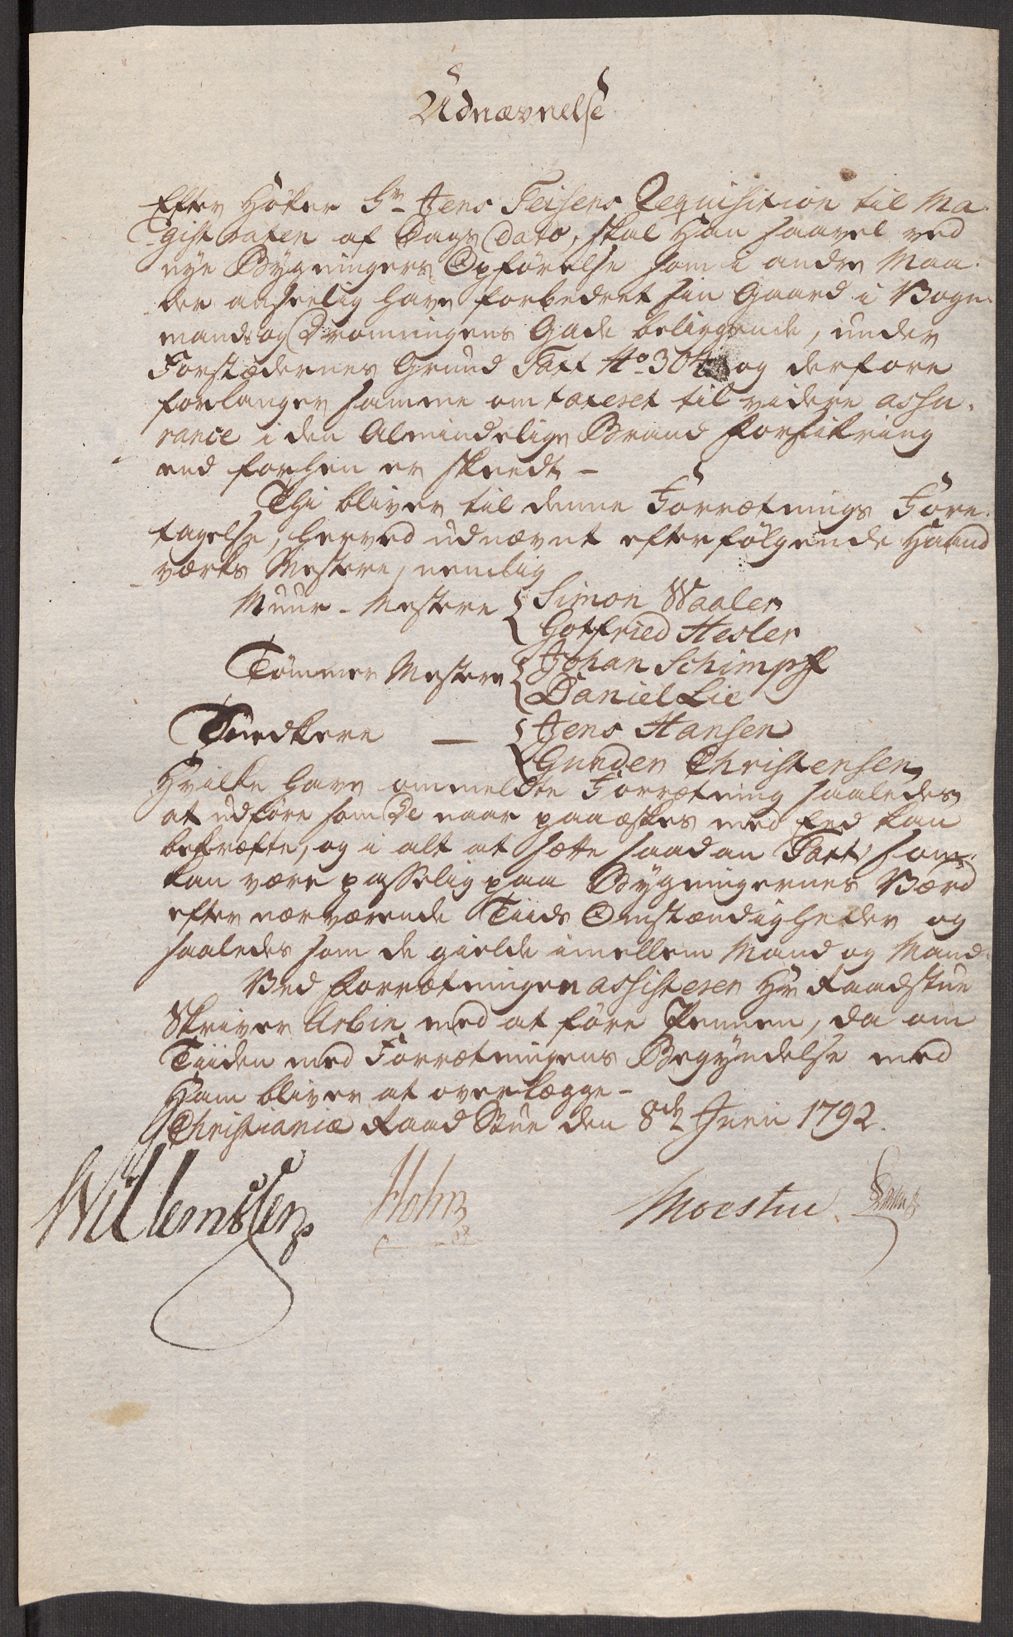 Udnævnelse
Efter Høker Sr Jens Feisens Requisition til Ma-
gistraten af Dags Dato, skal Han saavel ved
nye Bygningers Opførelse som i andre Maa-
der anseelig have forbedret sin Gaard i Vogn-
mands og Dronningens Gade beliggende, under
Forstædernes Grund Taxt No 304 og derfore
forlanger samme omtaxeret til videre assu-
rance i den Almindelige Brand Forsikring
end forhen er skeedt –
Thi bliver til denne Forrætnings Fore-
tagelse, herved udnævnt efterfølgende Haand
værks Mestere, nemlig
Muur-Mestere { Simon Waaler
Gotfried Hesler
Tømmer Mestere { Johan Schimpff
Daniel Lie
Snedkere – { Jens Hansen
Gunder Christensen,
Hvilke have ommeldte Forrætning saaledes
at udføre som De naar paaæskes med Eed kan
bekræfte, og i alt at sætte saadan Taxt som
kan være passelig paa Bygningernes Værd
efter nærværende Tiids Omstændigheder og
saaledes som de gielde imellem Mand og Mand.
Ved Forrætningen assisterer Hr Raadstue
Skriver Arbin med at føre Pennen, da om
Tiiden med Forrætningens Begyndelse med
Ham bliver at overlægge –
Christianiæ Raad Stue den 8de Junii 1792.
Willemssen Hohn Moestue